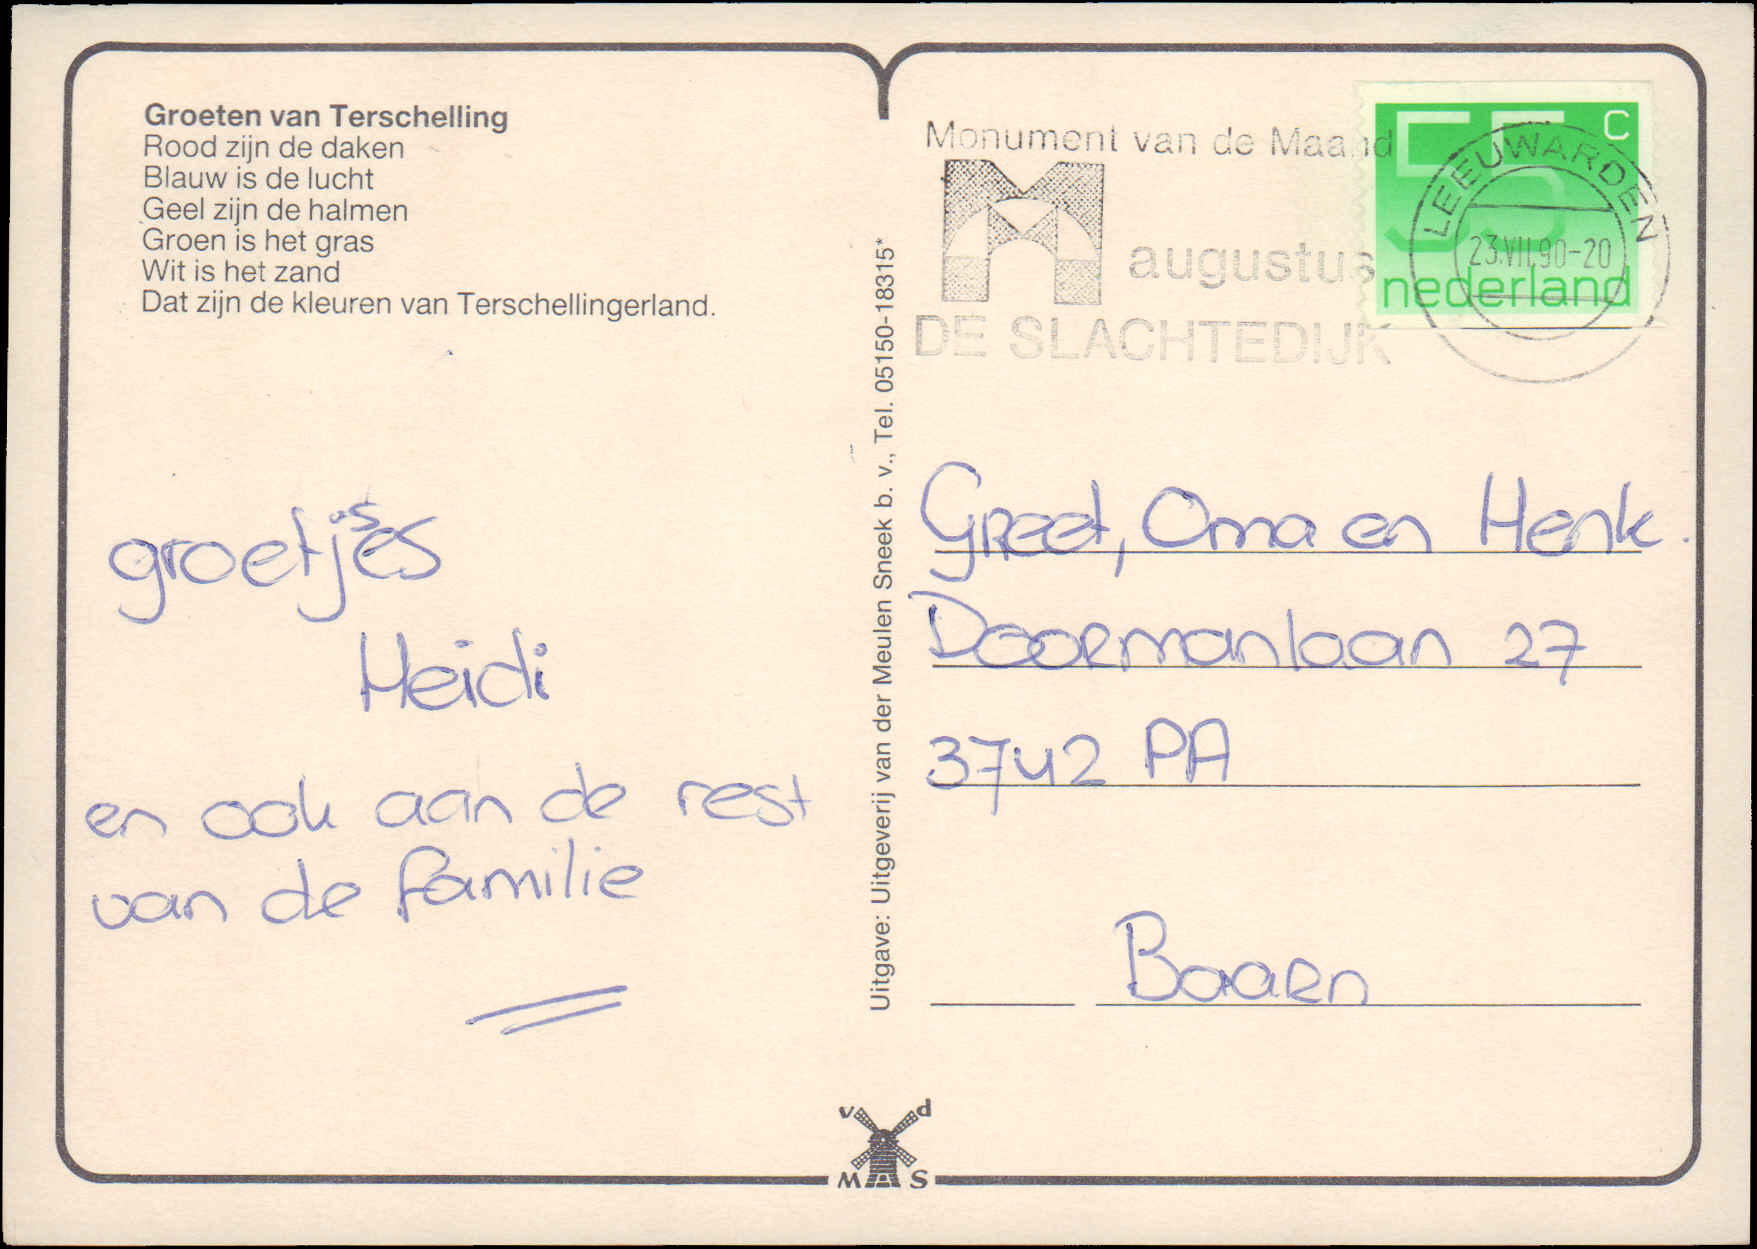 Groeten van Terschelling
Rood zijn de daken
Blauw is de lucht
Geel zijn de halmen
Groen is het gras
Wit is het zand
Dat zijn de kleuren van Terschellingerland.
groetjes
Heidi
en ook aan de rest
van de familie
Uitgave: Uitgeverij van der Meulen Sneek b. v., Tel. 05150-18315*
Monument van de Maand
augustus
DE SLACHTEDIJK
55 c
nederland
LEEUWARDEN
23.VII.90-20
Greet, Oma en Henk.
Doormanlaan 27
3742 PA
Baarn
v d
M S